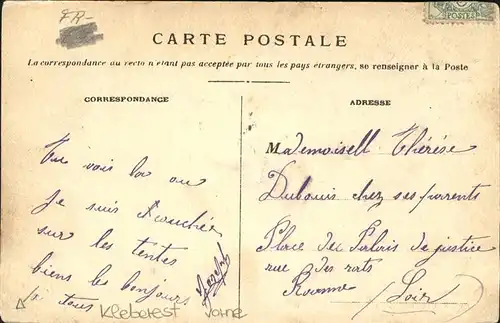 FR-
POSTES
CARTE POSTALE
La correspondance au recto n'étant pas acceptée par tous les pays étrangers, se renseigner à la Poste
CORRESPONDANCE
Tu vois la ou
Je suis couchée
sur les tentes
biens les bonjours
à tous
Kleberest
ADRESSE
Mademoisell Thérèse
Dubouis chez ses parrents
Place du Palais de justice
rue des rats
Roanne Loir